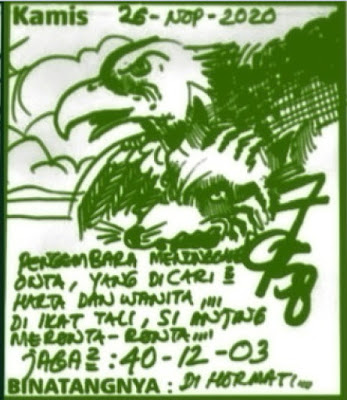 Kamis 26-NOP-2020
7
9
8
PENGEMBARA MENUNGGANG
ONTA, YANG DICARI 2
HARTA DAN WANITA ,,,,
DI IKAT TALI, SI ANJING
MERONTA-RONTA ,,,,
JAGA2 : 40-12-03
BINATANGNYA : DI HORMATI...